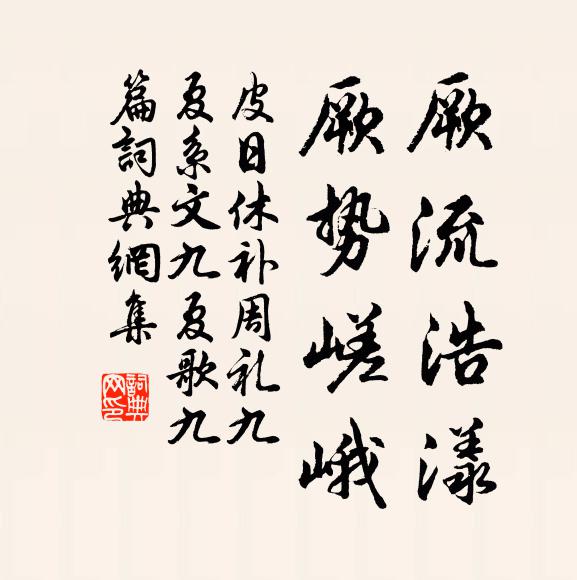 厥流浩漾
厥势嵯峨
皮日休补周礼九
夏系文九夏歌九
篇词典網集
詞典
网印